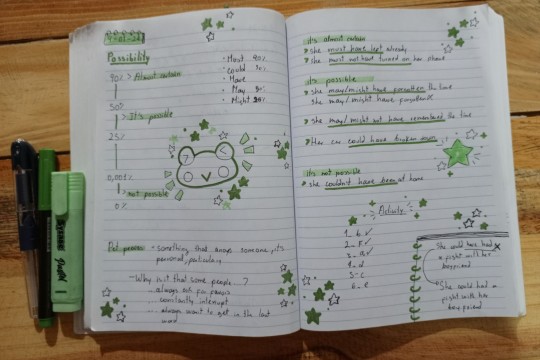 9-01-24
Possibility
90% > Almost certain
50%
> It's possible
25%
0,001%
> not possible
0%
• Most 90%
• Could
• Have
• May
• Might
Pet peeves - something that annoys someone, it's
personal, particulary
- Why is it that some people...?
... always ask for
... constantly interrupt
... always want to get in the last
word
it's almost certain
she must have left already
she must not have turned on her phone
it's possible
she may/might have forgotten the time
she may/might have forgotten
she may/might not have remembered the time
Her car could have broken down
it's not possible
she couldn't have been at home
Activity
1- b ✓
2- f ✓
3- a ✓
4- d
5- c
6- e
She could have had X
a fight with her
boyfriend
She could had a
fight with her
boyfriend